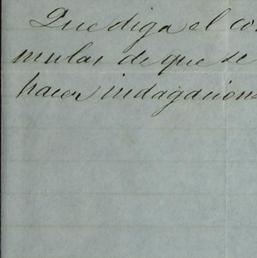 Que diga el co
mulas de que se
hacen indagacione